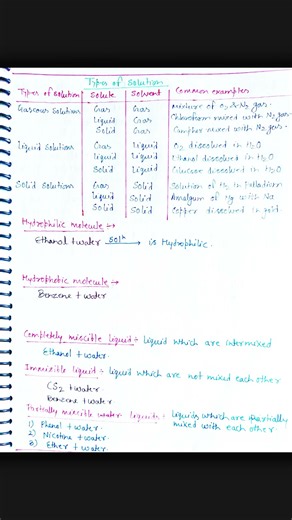 Types of Solution
Types of solution Solute Solvent Common examples
Gaseous Solutions Gas Gas Mixture of O2 & N2 gas.
Liquid Gas Chloroform mixed with N2 gas.
Solid Gas Camphor mixed with N2 gas.
Liquid Solutions Gas Liquid O2 dissolved in H2O
Liquid Liquid Ethanol dissolved in H2O
Solid Liquid Glucose dissolved in H2O
Solid Solutions Gas Solid Solution of H2 in Palladium
Liquid Solid Amalgum of Hg with Na
Solid Solid Copper dissolved in gold.
Hydrophilic molecule →
Ethanol + water solⁿ → is Hydrophilic.
Hydrophobic molecule →
Benzene + water
Completely miscible liquid ÷ Liquid which are intermixed
Ethanol + water.
Immisible liquid ÷ liquid which are not mixed each other
CS2 + water
Benzene + water
Partially miscible water liquids ÷ Liquids which are partially
mixed with each other.
1) Phenol + water.
2) Nicotine + water.
3) Ether + water